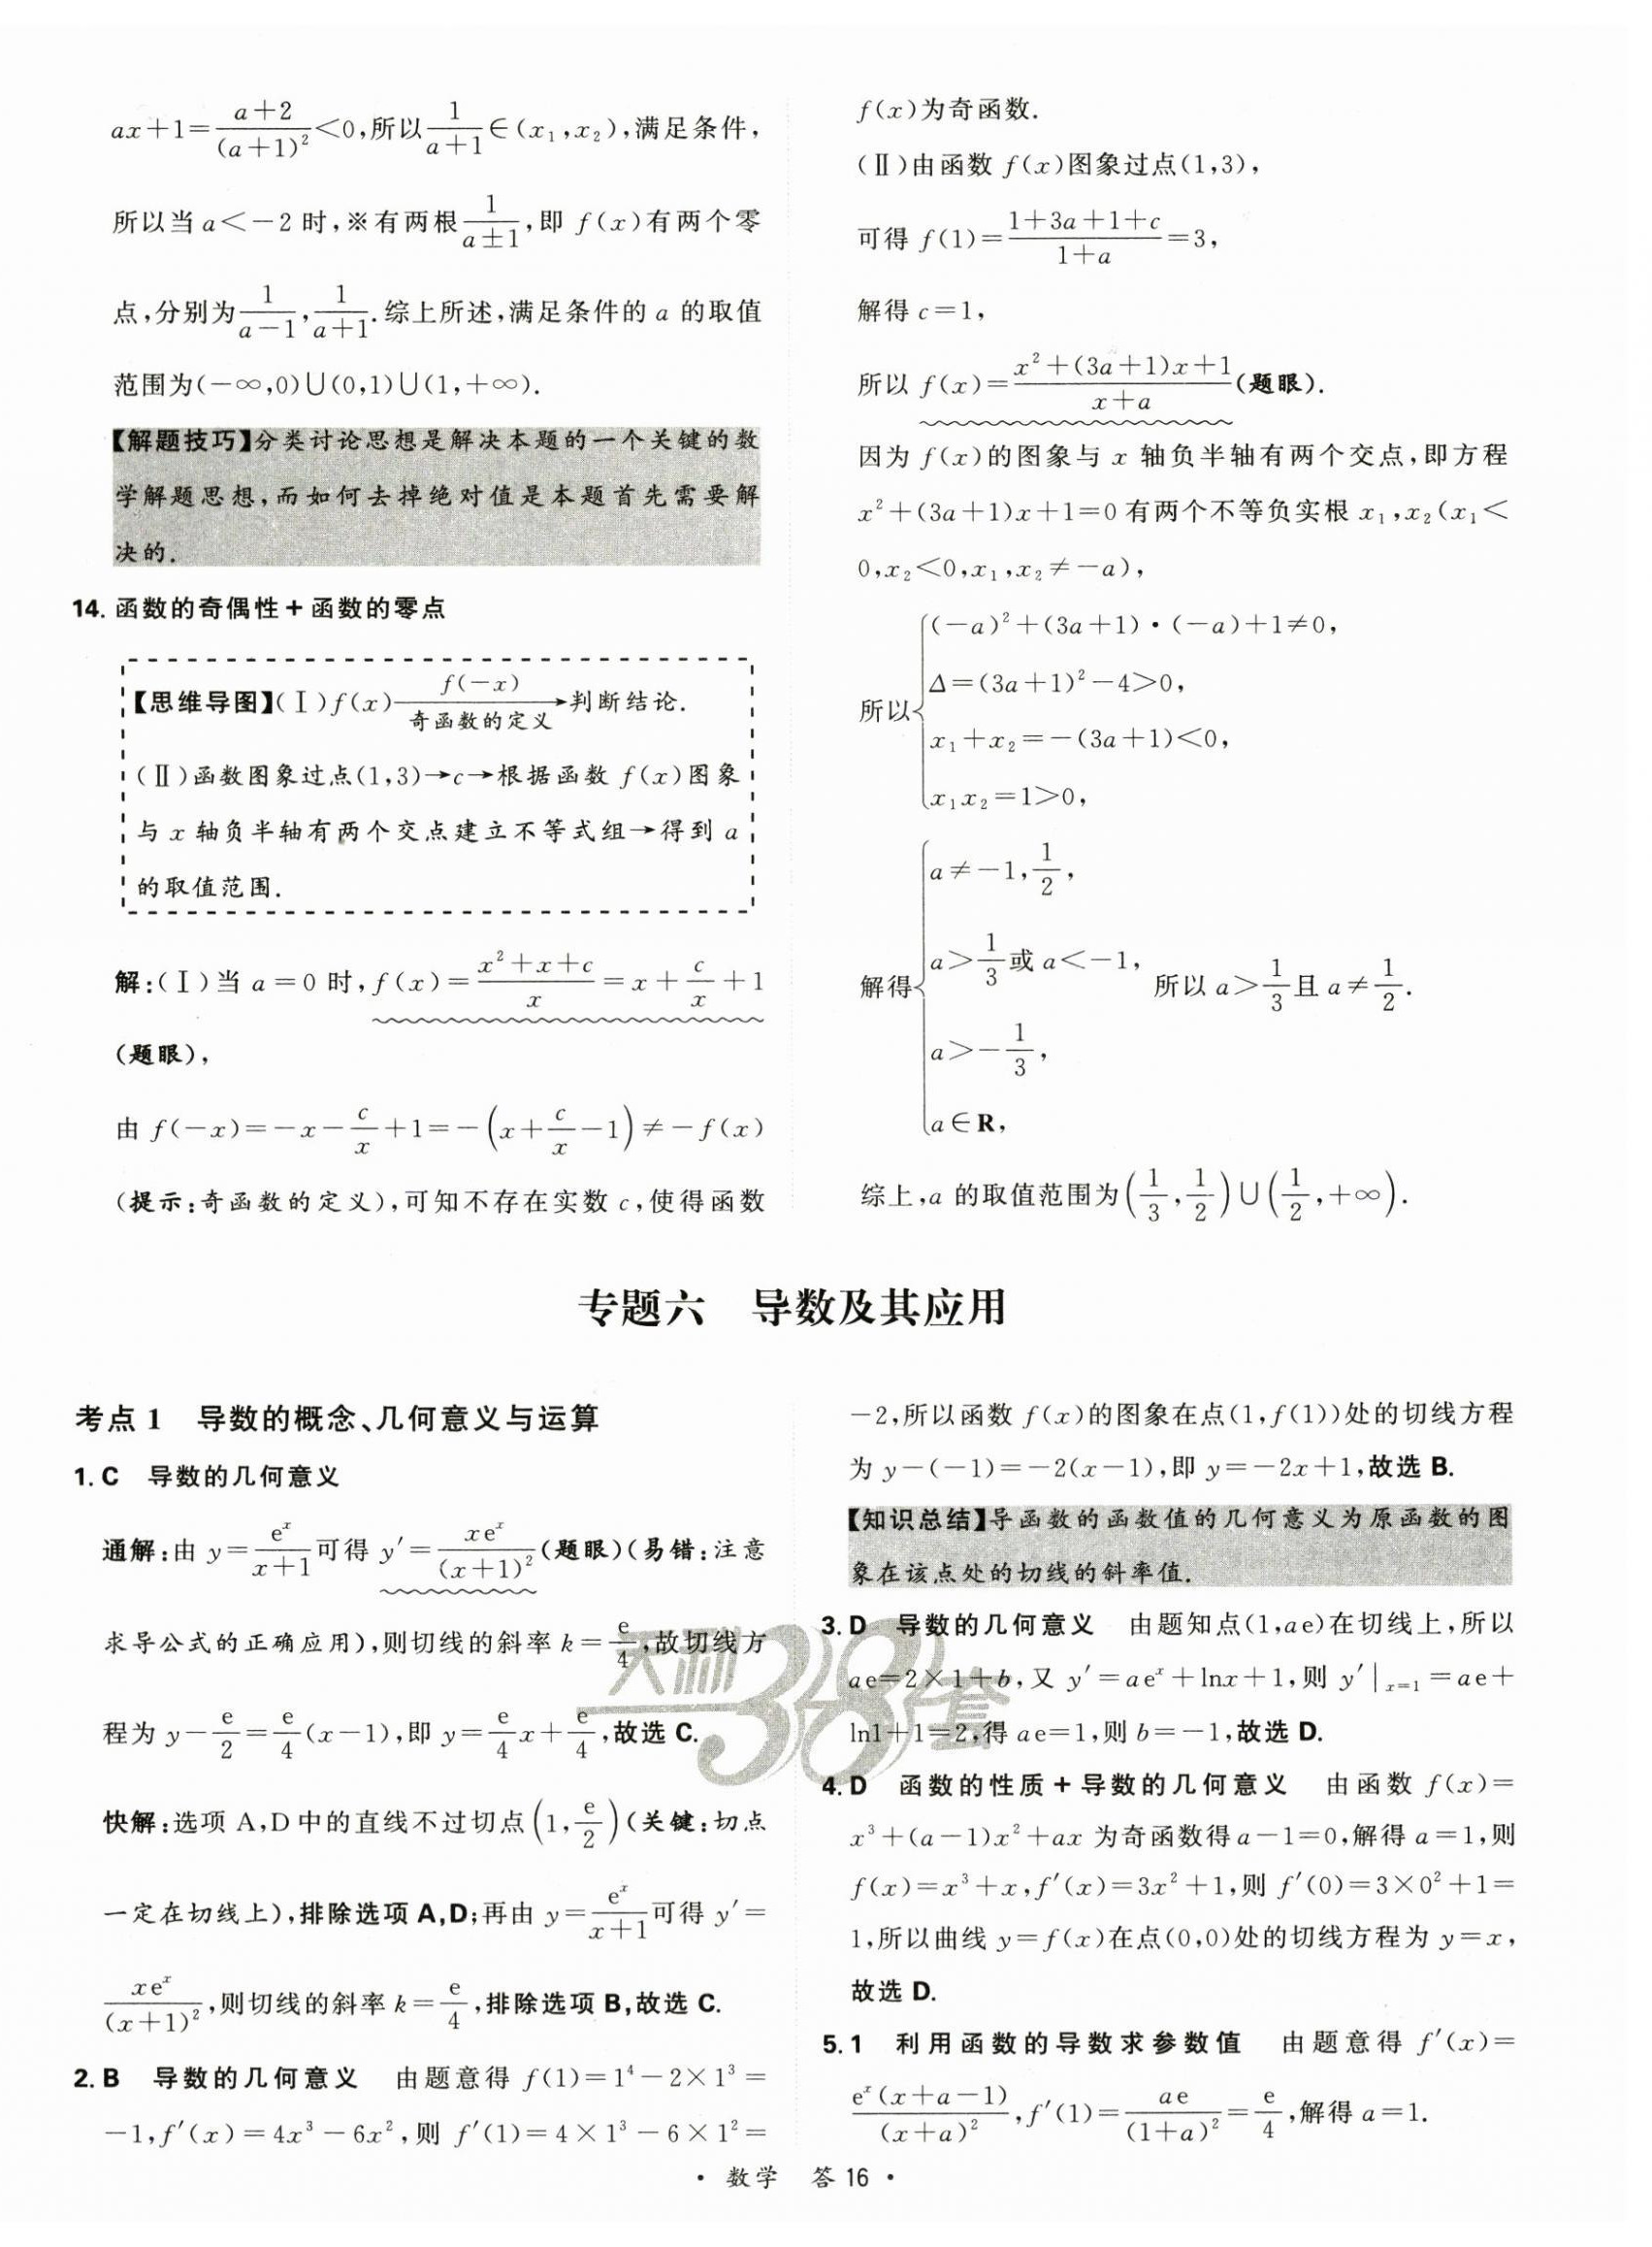 ax+1=\frac{a+2}{(a+1)^2}<0,所以\frac{1}{a+1}∈(x_1,x_2),满足条件,
所以当a<-2时,※有两根\frac{1}{a±1},即f(x)有两个零
点,分别为\frac{1}{a-1},\frac{1}{a+1}.综上所述,满足条件的a的取值
范围为(-∞,0)∪(0,1)∪(1,+∞).
【解题技巧】分类讨论思想是解决本题的一个关键的数
学解题思想,而如何去掉绝对值是本题首先需要解
决的.
14. 函数的奇偶性+函数的零点
【思维导图】(Ⅰ)f(x) \xrightarrow[奇函数的定义]{f(-x)} 判断结论.
(Ⅱ)函数图象过点(1,3)→c→根据函数f(x)图象
与x轴负半轴有两个交点建立不等式组→得到a
的取值范围.
解:(Ⅰ)当a=0时,f(x)=\frac{x^2+x+c}{x}=x+\frac{c}{x}+1
(题眼),
由f(-x)=-x-\frac{c}{x}+1=-(x+\frac{c}{x}-1)≠-f(x)
(提示:奇函数的定义),可知不存在实数c,使得函数
f(x)为奇函数.
(Ⅱ)由函数f(x)图象过点(1,3),
可得f(1)=\frac{1+3a+1+c}{1+a}=3,
解得c=1,
所以f(x)=\frac{x^2+(3a+1)x+1}{x+a}(题眼).
因为f(x)的图象与x轴负半轴有两个交点,即方程
x^2+(3a+1)x+1=0有两个不等负实根x_1,x_2(x_1<
0,x_2<0,x_1,x_2≠-a),
(-a)^2+(3a+1)·(-a)+1≠0,
Δ=(3a+1)^2-4>0,
所以{
x_1+x_2=-(3a+1)<0,
x_1x_2=1>0,
a≠-1,\frac{1}{2},
a>\frac{1}{3}或a<-1,
解得{ 所以a>\frac{1}{3}且a≠\frac{1}{2}.
a>-\frac{1}{3},
a∈R,
综上,a的取值范围为(\frac{1}{3},\frac{1}{2})∪(\frac{1}{2},+∞).
专题六 导数及其应用
考点1 导数的概念、几何意义与运算
1. C 导数的几何意义
通解:由y=\frac{e^x}{x+1}可得y'=\frac{xe^x}{(x+1)^2}(题眼)(易错:注意
求导公式的正确应用),则切线的斜率k=\frac{e}{4},故切线方
程为y-\frac{e}{2}=\frac{e}{4}(x-1),即y=\frac{e}{4}x+\frac{e}{4},故选C.
快解:选项A,D中的直线不过切点(1,\frac{e}{2})(关键:切点
一定在切线上),排除选项A,D;再由y=\frac{e^x}{x+1}可得y'=
\frac{xe^x}{(x+1)^2},则切线的斜率k=\frac{e}{4},排除选项B,故选C.
2. B 导数的几何意义 由题意得f(1)=1^4-2×1^3=
-1,f'(x)=4x^3-6x^2,则f'(1)=4×1^3-6×1^2=
-2,所以函数f(x)的图象在点(1,f(1))处的切线方程
为y-(-1)=-2(x-1),即y=-2x+1,故选B.
【知识总结】导函数的函数值的几何意义为原函数的图
象在该点处的切线的斜率值.
3. D 导数的几何意义 由题知点(1,ae)在切线上,所以
ae=2×1+b,又y'=ae^x+lnx+1,则y'|_{x=1}=ae+
ln1+1=2,得ae=1,则b=-1,故选D.
4. D 函数的性质+导数的几何意义 由函数f(x)=
x^3+(a-1)x^2+ax为奇函数得a-1=0,解得a=1,则
f(x)=x^3+x,f'(x)=3x^2+1,则f'(0)=3×0^2+1=
1,所以曲线y=f(x)在点(0,0)处的切线方程为y=x,
故选D.
5. 1 利用函数的导数求参数值 由题意得f'(x)=
\frac{e^x(x+a-1)}{(x+a)^2},f'(1)=\frac{ae}{(1+a)^2}=\frac{e}{4},解得a=1.
天利38套
·数学 答16·